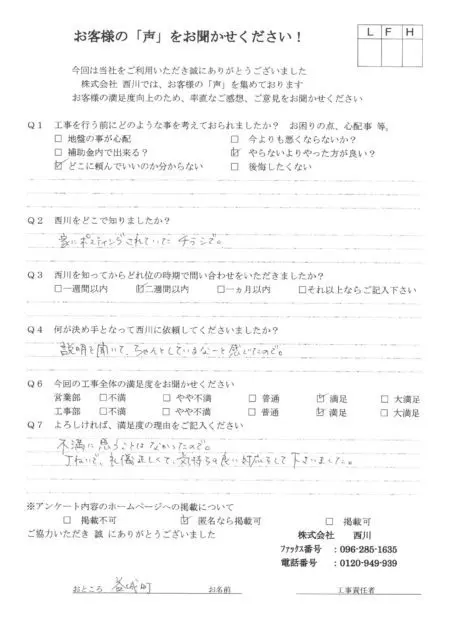 お客様の「声」をお聞かせください！
L F H
今回は当社をご利用いただき誠にありがとうございました
株式会社 西川では、お客様の「声」を集めております
お客様の満足度向上のため、率直なご感想、ご意見をお聞かせください
Q1 工事を行う前にどのような事を考えておられましたか？ お困りの点、心配事 等。
□ 地盤の事が心配 □ 今よりも悪くならないか？
□ 補助金内で出来る？ ☑ やらないよりやった方が良い？
☑ どこに頼んでいいのか分からない □ 後悔したくない
Q2 西川をどこで知りましたか？
家にポスティングされていた チラシで。
Q3 西川を知ってからどれ位の時期で問い合わせをいただきましたか？
□一週間以内 ☑二週間以内 □一ヵ月以内 □それ以上ならご記入下さい
Q4 何が決め手となって西川に依頼してくださいましたか？
説明を聞いて、ちゃんとしているなーと感じたので。
Q6 今回の工事全体の満足度をお聞かせください
営業部 □不満 □やや不満 □普通 ☑満足 □大満足
工事部 □不満 □やや不満 □普通 ☑満足 □大満足
Q7 よろしければ、満足度の理由をご記入ください
不満に思うことはなかったので。
ていねいで、礼儀正しくて、気持ちの良い対応をして下さいました。
※アンケート内容のホームページへの掲載について
□ 掲載不可 ☑ 匿名なら掲載可 □ 掲載可
ご協力いただき 誠 にありがとうございました 株式会社 西川
ファックス番号 ：096-285-1635
電話番号 ：0120-949-939
おところ 益城町 お名前 工事責任者